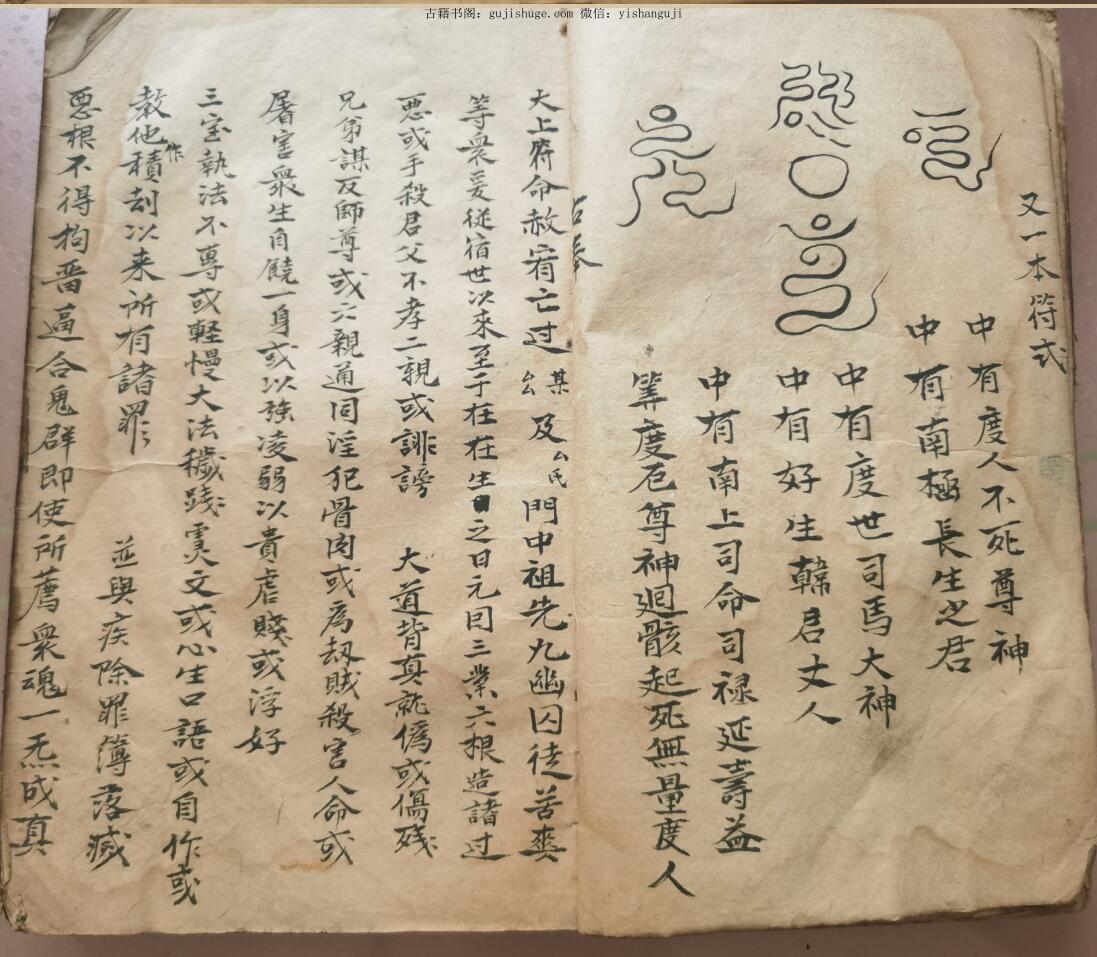 古籍书阁：gujishuge.com 微信：yishanguji
又一本符式
中有度人不死尊神
中有南極長生之君
中有度世司馬大神
中有好生韓君丈人
中有南上司命司禄延壽益
筭度厄尊神迴骸起死無量度人
大上符命赦宥亡过某厶及厶氏門中祖先九幽囚徒苦爽
等衆爰従宿世以來至于在在生之日元因三業六根造諸过
悪或手殺君父不孝二親或誹謗 大道背真就僞或傷残
兄弟謀反師尊或六親通同淫犯骨肉或為刼賊殺害人命或
屠害衆生自饒一身或以強凌弱以貴虐賤或浮好
三宝執法不專或軽慢大法穢践霊文或心生口語或自作或
教他作積刦以来所有諸罪 並與疾除罪簿落滅
悪根不得拘畱逼合鬼群即使所薦衆魂一炁成真